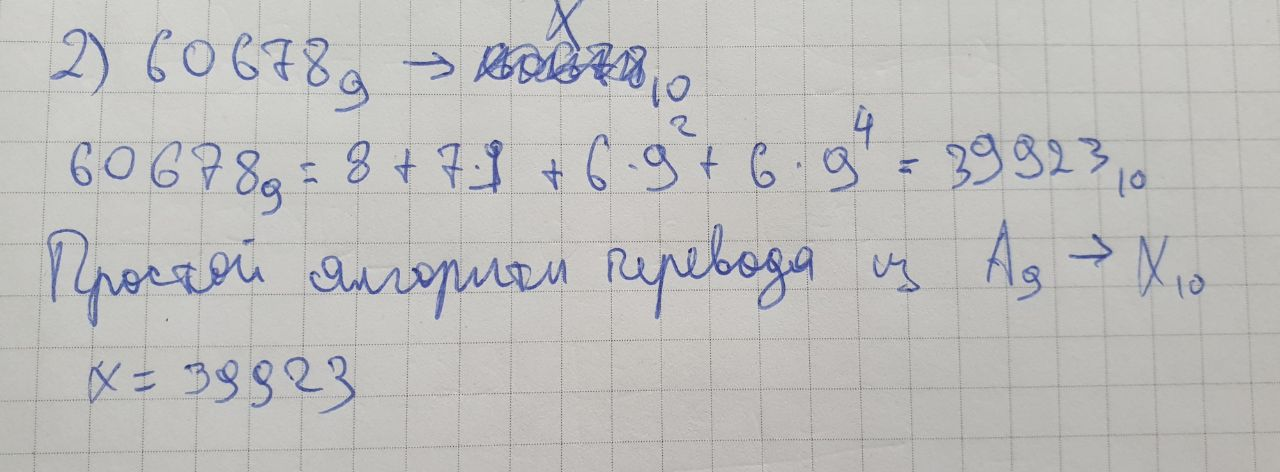 2) 60678₉ → X₁₀
60678₉ = 8 + 7·9 + 6·9² + 6·9⁴ = 39923₁₀
Простой алгоритм перевода из A₉ → X₁₀
x = 39923